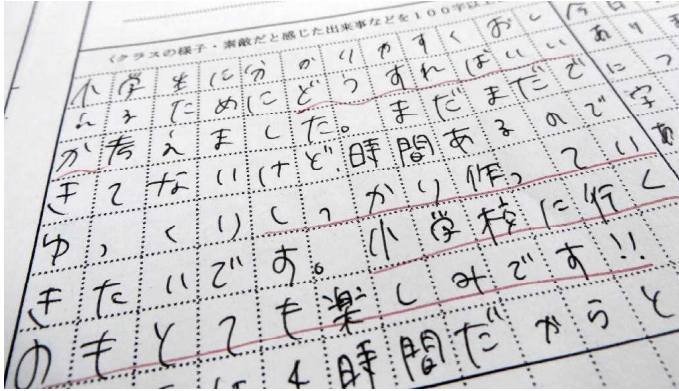 (クラスの様子・素敵だと感じた出来事などを100字以上
小学生に分かりやすくおし
えるためにどうすればいい
か考えました。まだまだで
きてないけど、時間あるので
ゆっくりしっかり作ってい
きたいです。小学校に行く
のもとても楽しみです!!
4時間だからと
今日
あり
につ
字